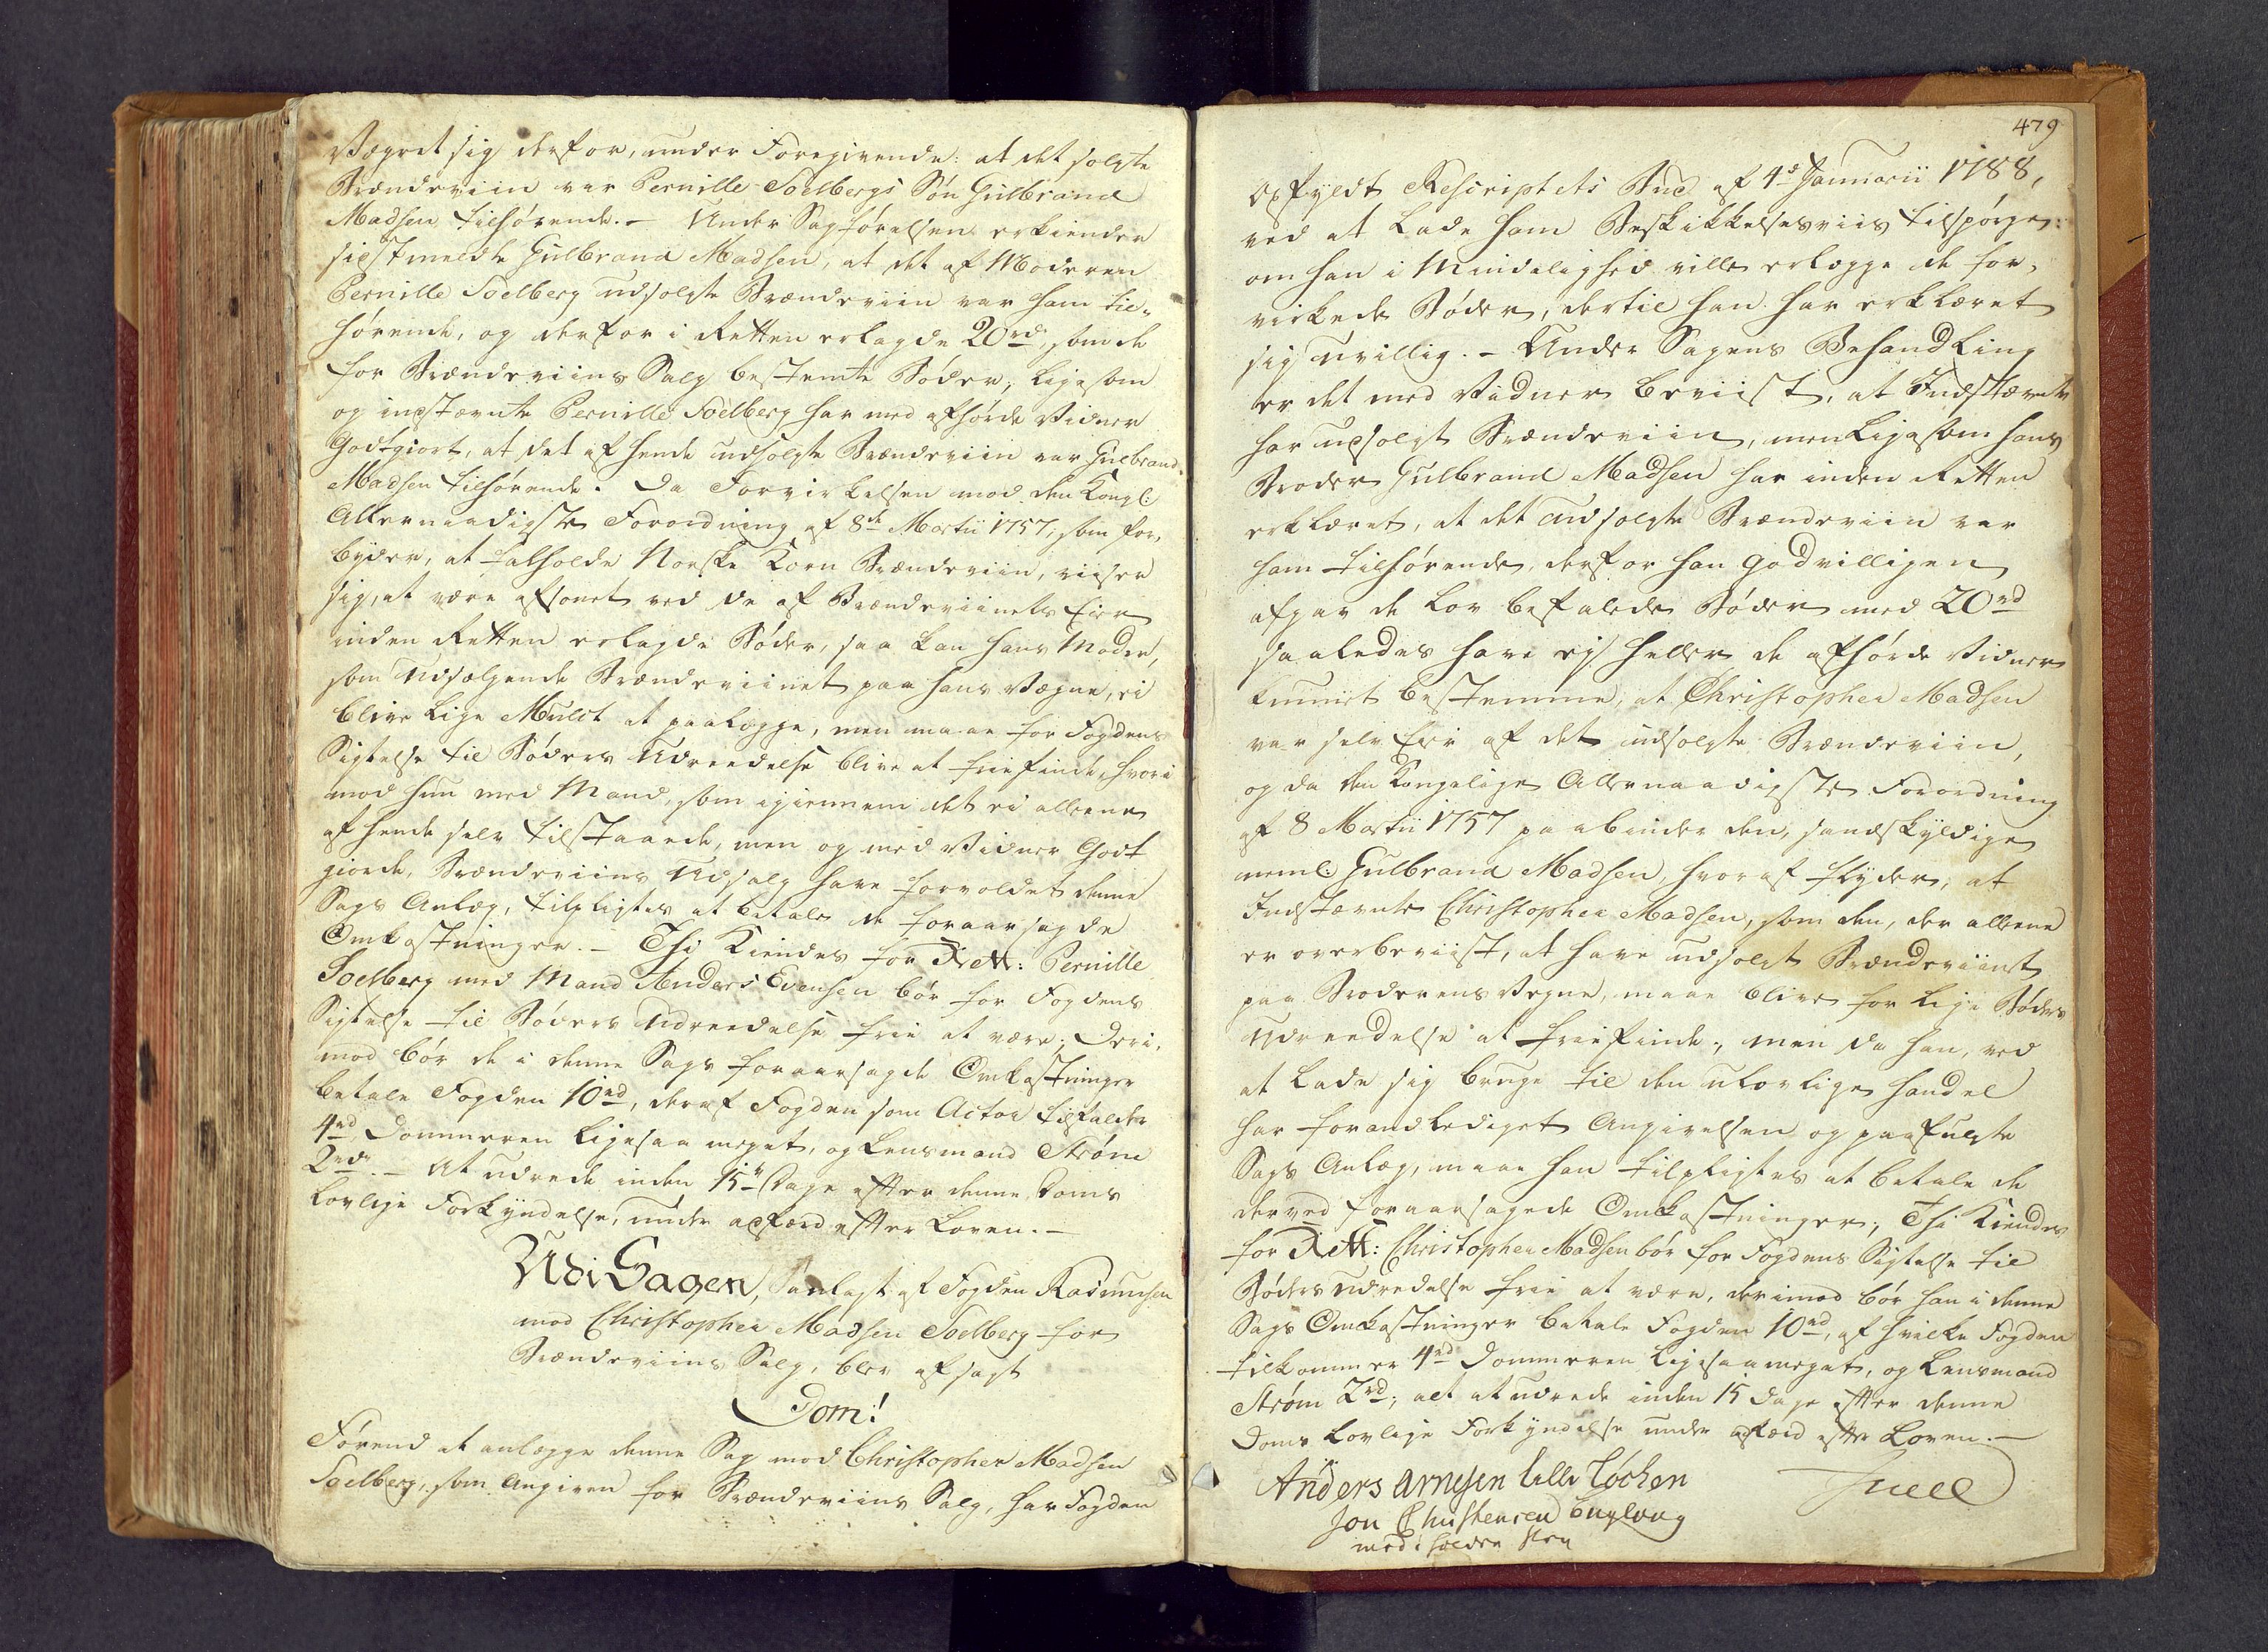 Vægret sig derfor, under Foregivende: at det solgte
Brændeviin var Pernille Soelbergs Søn Gulbrand
Madsen tilhørende. – Under Sagførelsen erkiender
sidstmeldte Gulbrand Madsen, at det af Moderen
Pernille Soelberg udsolgte Brændeviin var ham til-
hørende, og derfor i Retten erlagde 20 rd, som de
for Brændeviins Salg bestemte Bøder, ligesom
og indstævnte Pernille Soelberg har med afhørde Vidner
Godtgiort, at det af hende udsolgte Brændeviin var Gulbrand
Madsen tilhørende. Da Forvirkelsen mod den Kongl:
Allernaadigste Forordning af 8de Martii 1757, som for-
byder, at falholde Norske Korn Brændeviin, viiser
sig, at være afsonet ved de af Brændeviinets Eier
inden Retten erlagde Bøder, saa kan hans Moder,
som Udsælgende Brændeviinet paa hans Vegne, ei
blive lige Mulct at paalægge, men maae for Fogdens
Sigtelse til Bøders Udreedelse blive at friefinde, hvori-
mod hun med Mand, som igiennem det ei alleene
af hende selv tilstaaede, men og med Vidner Godt
giorde, Brændeviins Udsalg have forvoldet denne
Sags Anlæg, tilpligtes at betale de foraarsagede
Omkostninger. – Thi Kiendes for Rett: Pernille
Soelberg med Mand Anders Evensen bør for Fogdens
Sigtelse til Bøders Udreedelse frie at være; Deri-
mod bør de i denne Sags foraarsagede Omkostninger
betale Fogden 10 rd, deraf Fogden som Actor tilfalder
4 rd, Dommeren ligesaa meget, og Lensmand Strøm
2 rdr. – At udrede inden 15 Dage efter denne Doms
lovlige Forkyndelse, under adfærd efter Loven. –
Udi Sagen, anlagt af Fogden Rasmusen
mod Christopher Madsen Soelberg for
Brændeviins Salg, blev afsagt
Dom!
Førend at anlægge denne Sag mod Christopher Madsen
Soelberg, som angiven for Brændeviins Salg, har Fogden
479
opfyldt Rescriptets Bud af 4de Januarii 1788,
ved at lade ham Beskikkelsesviis tilspørge:
om han i Mindelighed ville erlægge de for-
virkede Bøder, dertil han har erklæret
sig uvillig. – Under Sagens Behandling
er det med Vidner beviist, at Indstævnte
har udsolgt Brændeviin, men ligesom hans
Broder Gulbrand Madsen har inden Retten
erklæret, at det udsolgte Brændeviin var
ham tilhørende, derfor han godvilligen
afgav de lov befalede Bøder med 20 rd
saaledes have ej heller de afhørde Vidner
kunnet bestemme, at Christopher Madsen
var selv Eier af det udsolgte Brændeviin,
og da den Kongelige Allernaadigste Forordning
af 8 Martii 1757 paabinder den sandskyldige
neml: Gulbrand Madsen, hvoraf flyder, at
Indstævnte Christopher Madsen, som den, der alleene
er overbeviist, at have udsolgt Brændeviinet
paa Broderens Vegne, maae blive for lige Bøders
Udreedelse at friefinde; men da han, ved
at lade sig bruge til den ulovlige handel
har forandlediget Angivelsen og paafulgte
Sags Anlæg, maae han tilpligtes at betale de
derved foraarsagede Omkostninger; Thi Kiendes
for Rett: Christopher Madsen bør for Fogdens Sigtelse til
Bøders udredelse frie at være, derimod bør han i denne
Sags Omkostninger betale Fogden 10 rd, af hvilke Fogden
tilkommer 4 rd Dommeren ligesaameget, og Lensmand
Strøm 2 rd; alt at udrede inden 15 Dage efter denne
Doms lovlige Forkyndelse under adfærd efter Loven. –
Anders Arnesen Lille Løchen
Juell
Jon Christensen Englaug
med i holden Pen